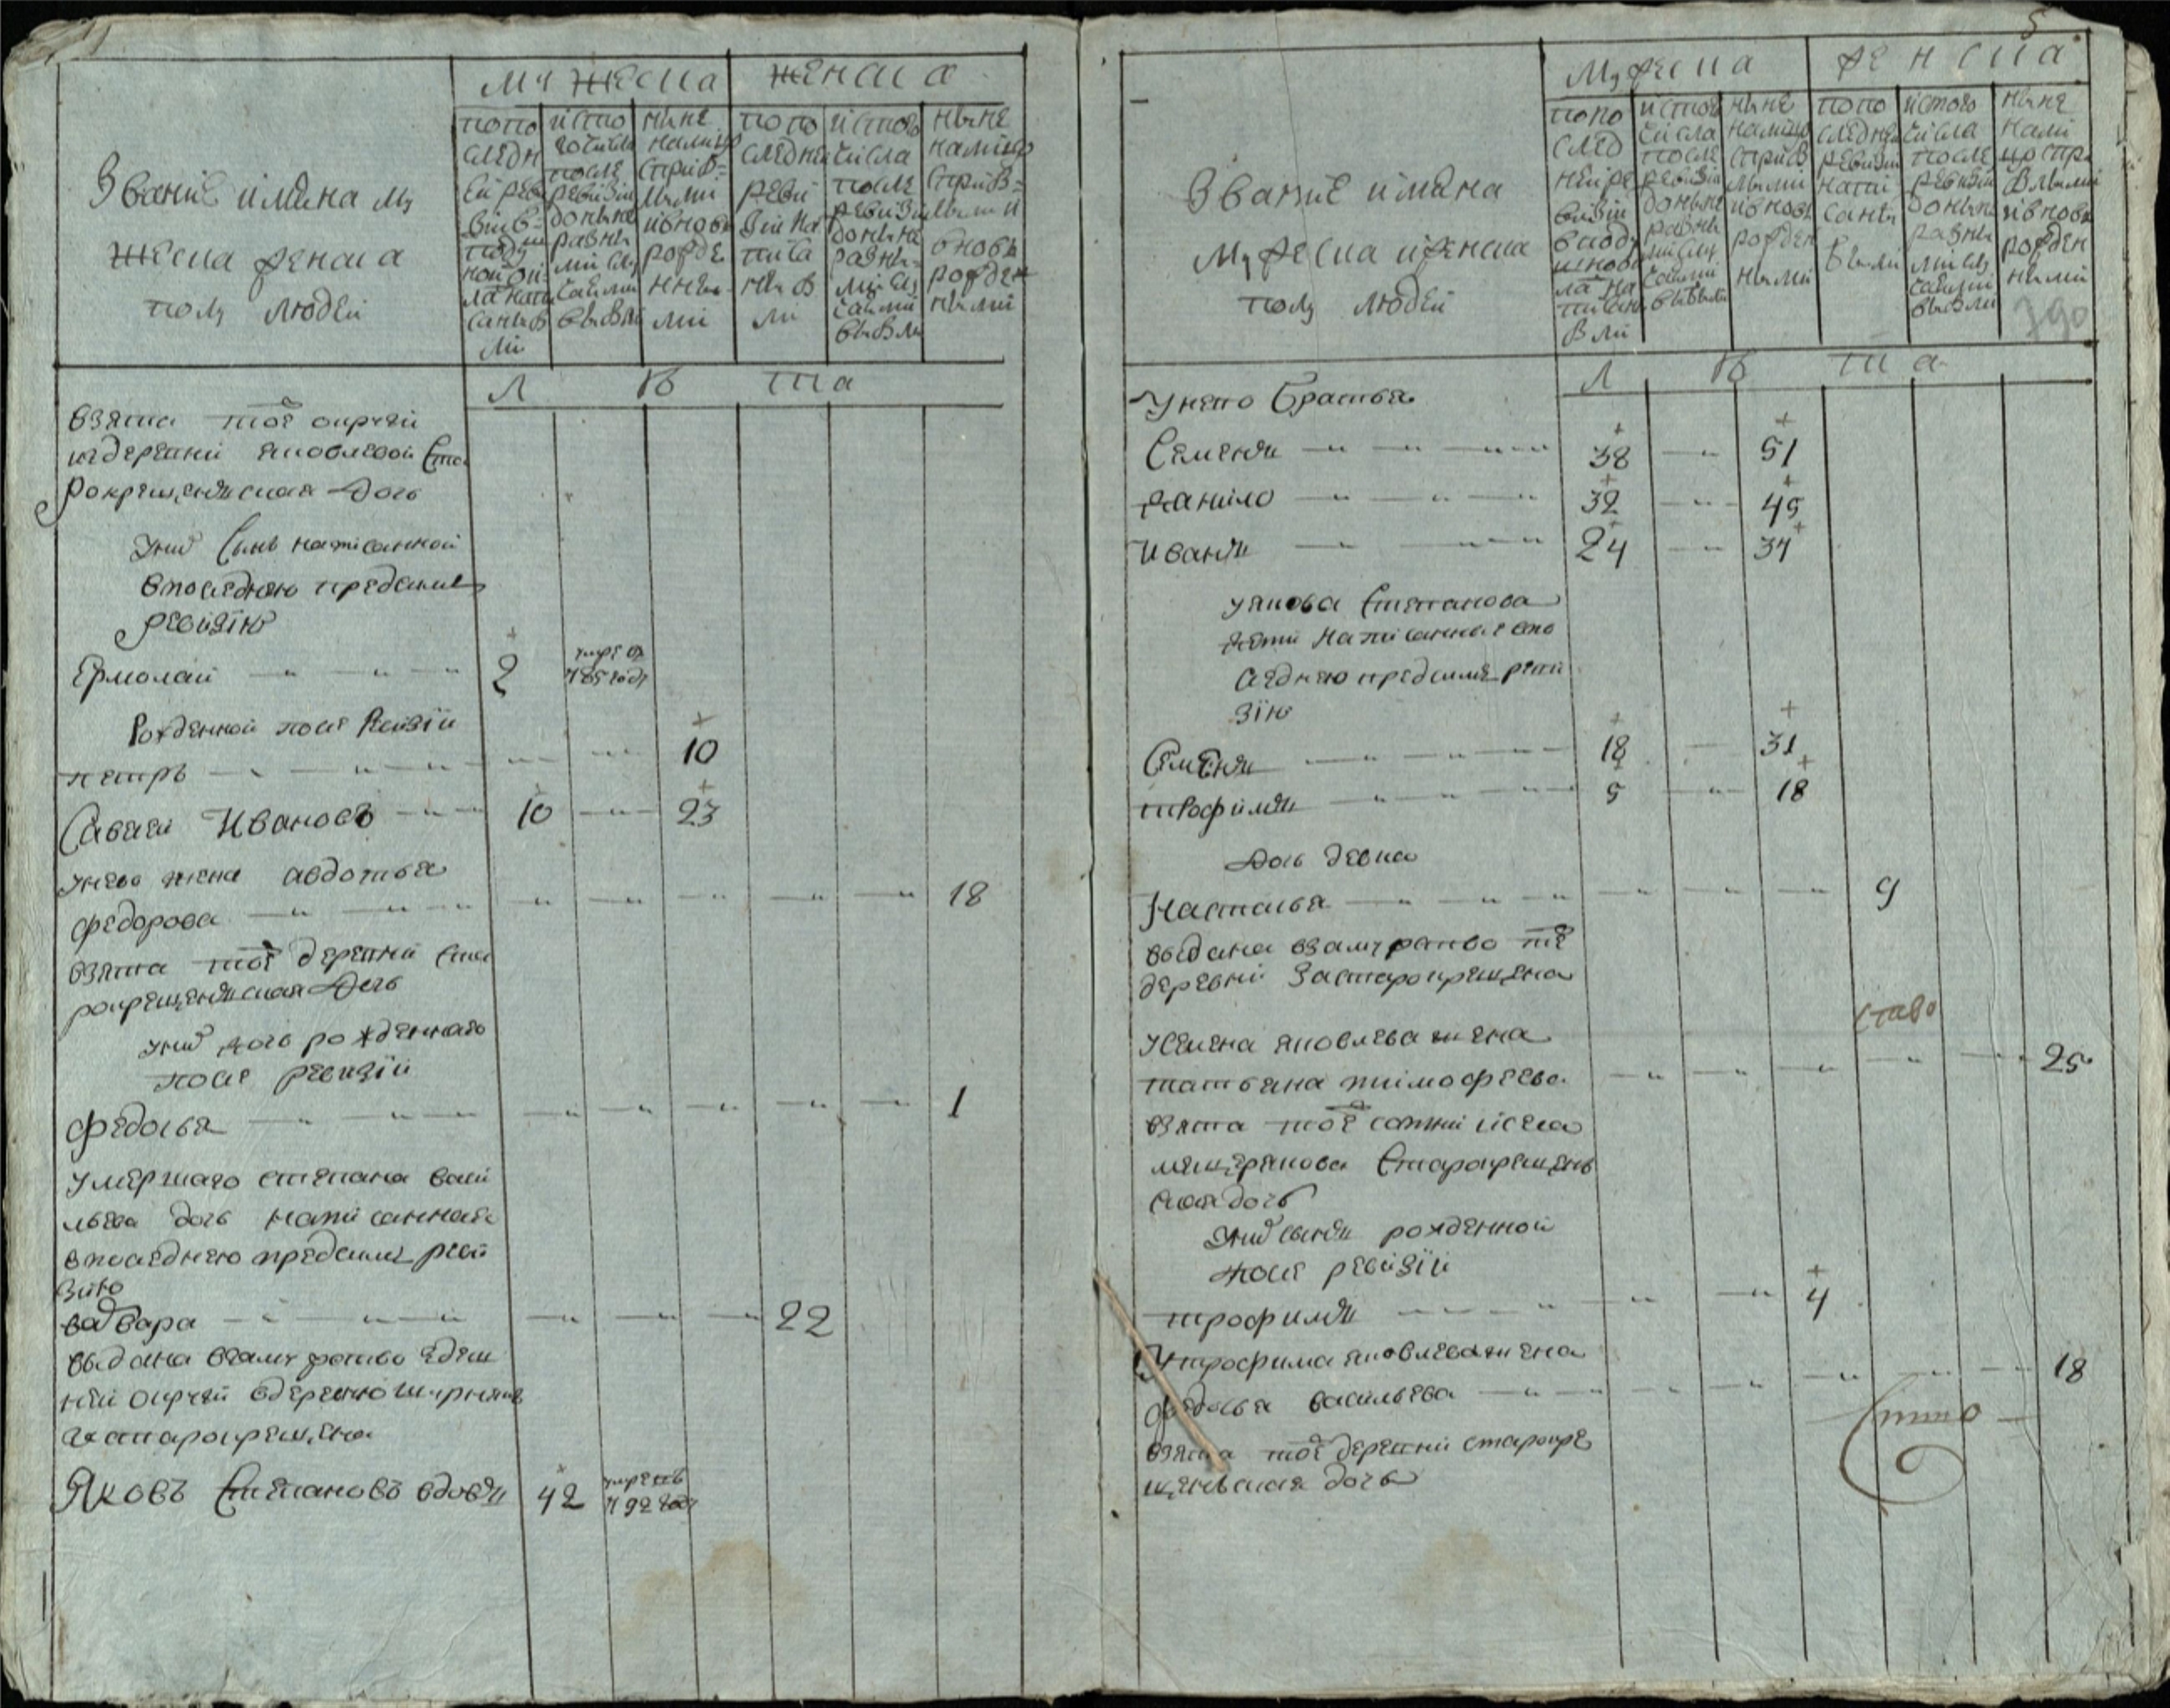 Званiе и имена му
жеска женска
полу людей
мужеска женска
по по
следн
ей реви
зiи в
поду
ной си
ла напи
саны б
ли
и сто
го числа
после
ревизiи
до ныне
разны
ми слу
чаями
выбыли
ныне
на лицо
с при б=
лыми
и вновь
рожде
нны
ми
по по
следней
реви
зiи на
писа
ны б
ли
и с того
числа
после
ревизiи
до ныне
разны=
ми слу
чаями
выбыли
ныне
на лицо
с при б=
лыми и
вновь
рожден
ными
Л ѣ та
взята той округи
из деревни Яковлевой Ста
рокрещенъская дочь
у них сынъ написанной
в последнюю пред сим
ревизiю
Ермолай 2 умре въ 785 году
Рожденной после Ревизiи
петръ 10
Савелей Ивановъ 10 23
у него жена авдотья
федорова 18
взята той деревни ста
рокрещенъская дочь
у них дочь рожденная
после ревизiи
федосья 1
умершаго степана васи
льева дочь написанная
в последнюю пред сим реви
зию
варвара 22
выдана в замужество здеш
ней округи в деревню
за старокрещена
Яковъ Степановъ вдовъ 42 умретъ 792 году
5
Званiе и имена
Мужеска и женска
полу людей
Мужеска женска
по по
след
ней ре
визiи
в поду
шной
ла на
писаны
б ли
и с того
числа
после
ревизiи
до ныне
разны
ми слу
чаями
выбыли
ныне
на лицо
с при б
лыми
и вновь
рожден
ными
по по
следней
ревизiи
напи
саны
были
и с того
числа
после
ревизiи
до ныне
разны
ми слу
чаями
выбыли
ныне
на ли
цо с при
былыми
и вновь
рожден
ными
390
Л ѣ та
У него братья
Семенъ 38 51
данило 32 45
иванъ 24 37
у якова степанова
дети написанные в по
следнюю пред сим реви
зiю
Семенъ 18 31
трофимъ 5 18
дочь девка
Настасья 9
выдана в замужество той
деревни за старокрещена
у семена яковлева жена
татьяна тимофеева 25
взята той сотни и села
мещерякова старокрещень
ская дочь
у них сынъ рожденной
после ревизiи
трофимъ 4
у трофима яковлева жена
федосья васильева 18
взята той деревни старокре
щенская дочь